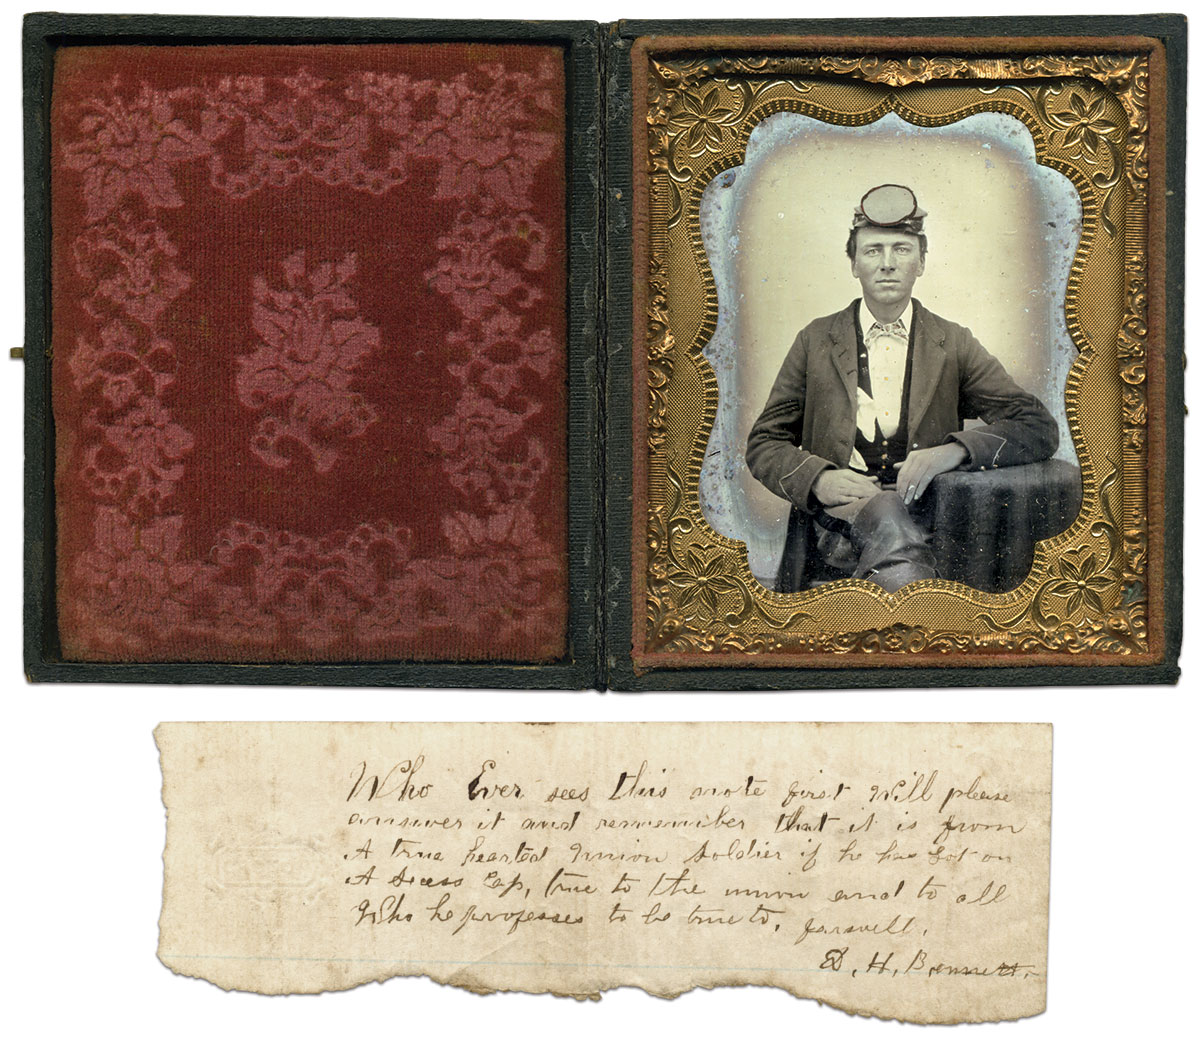 Who Ever sees this note first Will please
answer it and remember that it is from
A true hearted Union Soldier if he has Got on
A Secess Cap, true to the union and to all
Who he professes to be true to, farwell.
D. H. Bennett.